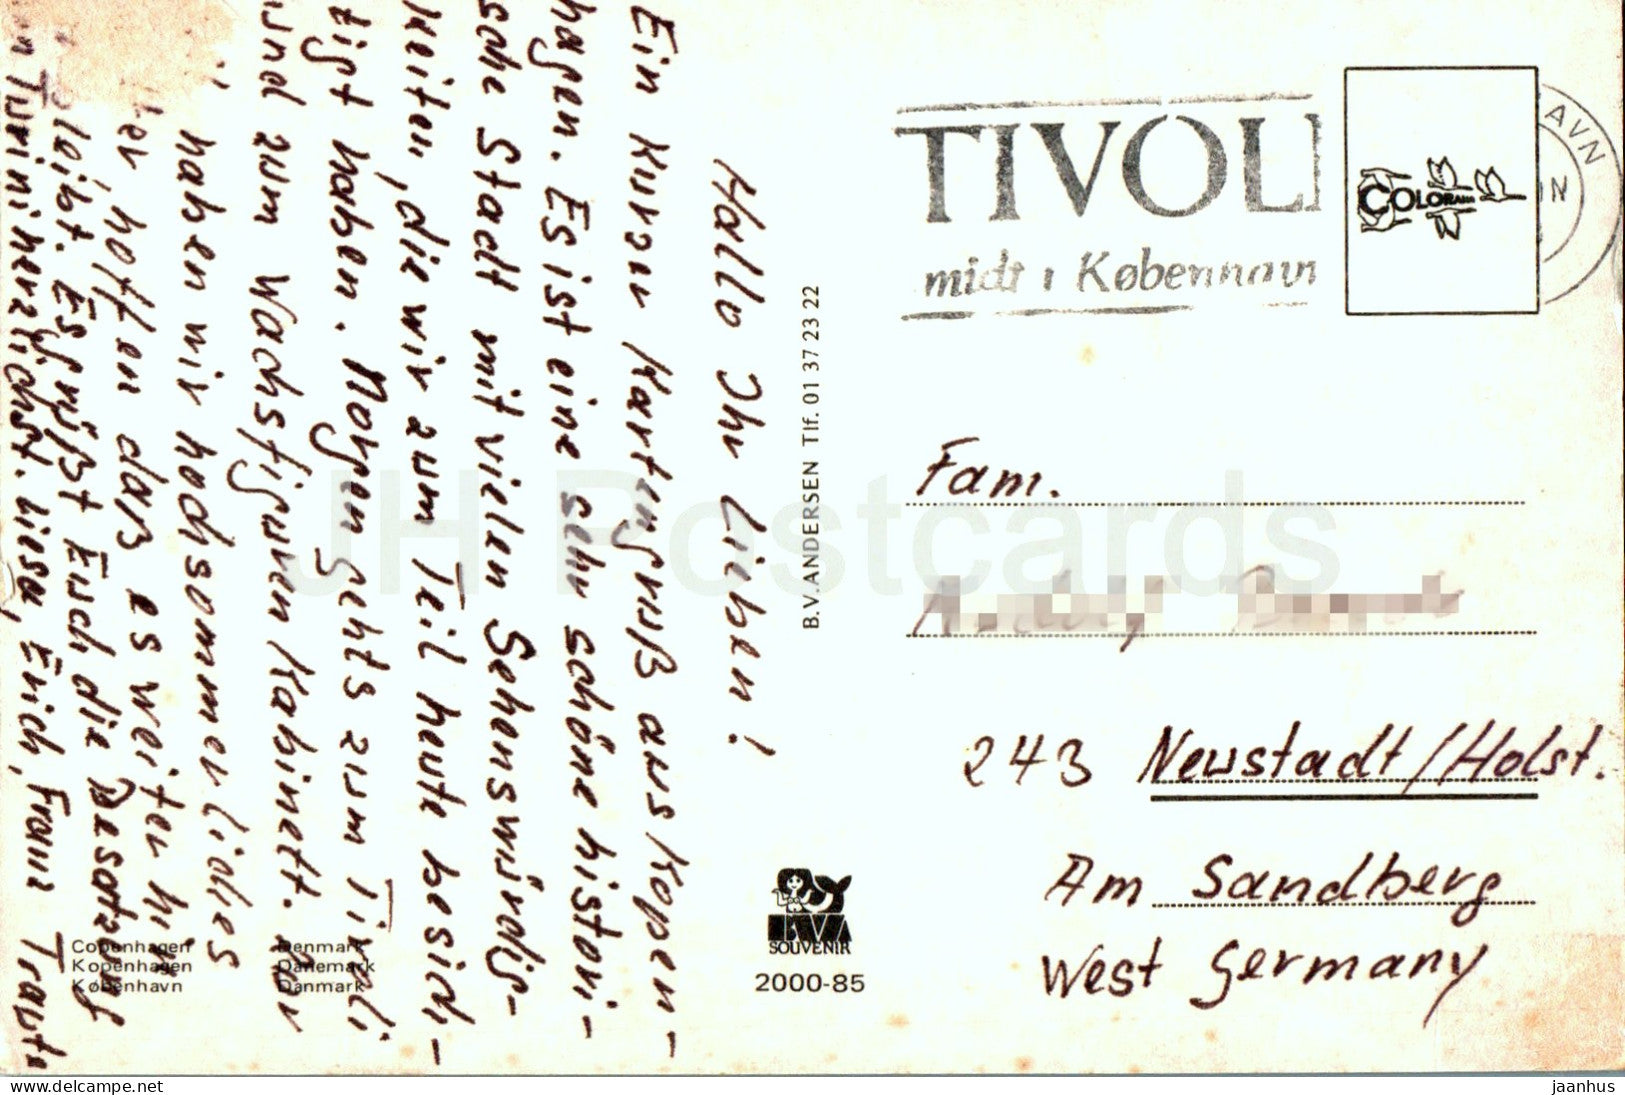 Hallo Ihr Lieben!
Ein kurzer Kartengruß aus Kopen-
hagen. Es ist eine sehr schöne histori-
sche Stadt mit vielen Sehenswürdig-
keiten, die wir zum Teil heute besich-
tigt haben. Morgen gehts zum Tivoli
und zum Wachsfigurenkabinett. Das
haben wir hochsommerliches
hoffen daß es weiter hin
bleibt. Es grüßt Euch die Besatzung
Turini herzlichst. Liesa, Erich, Franz Traute
TIVOLI
midt i København
AVN
COLORAMA
B.V.ANDERSEN Tlf. 01 37 23 22
Fam.
243 Neustadt/Holst.
Am Sandberg
West Germany
BVA
SOUVENIR
2000-85
Copenhagen Denmark
Kopenhagen Dänemark
København Danmark
JH Postcards
www.delcampe.net
jaanhus